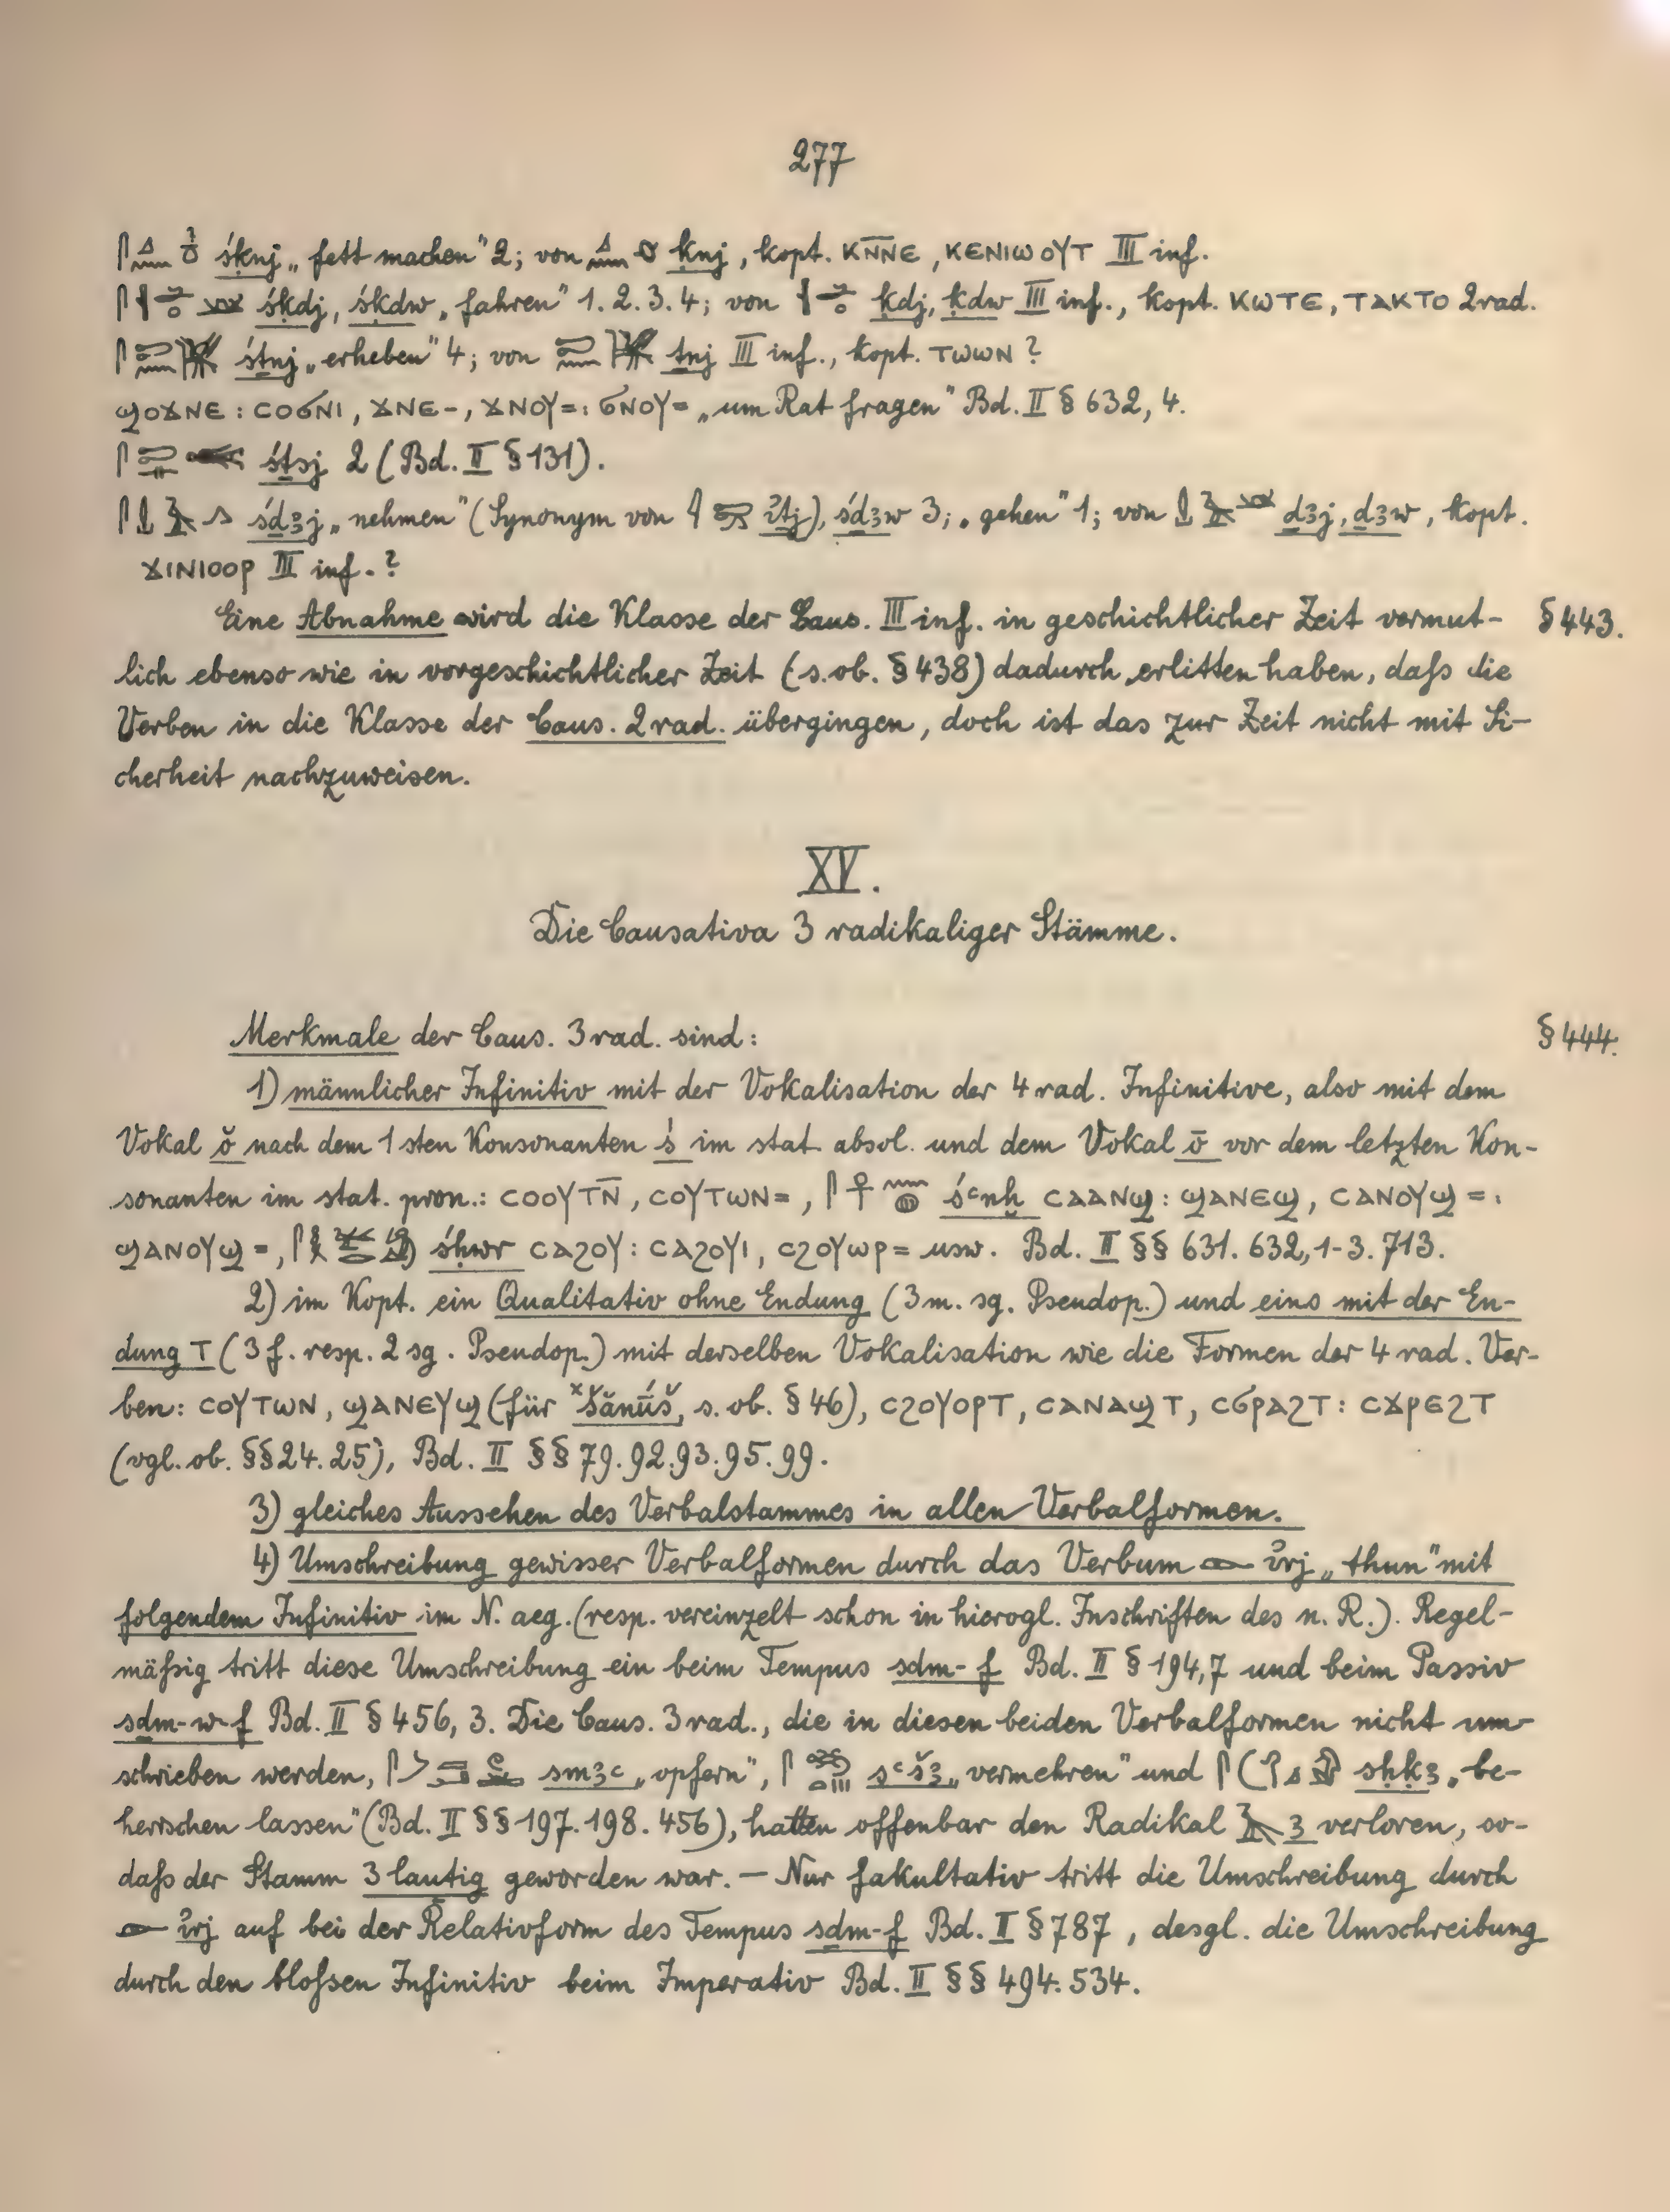 277
śḳnj „fett machen" 2; von ḳnj, kopt. ⲕⲛ̅ⲛⲉ, ⲕⲉⲛⲓⲱⲟⲩⲧ III inf.
śḳdj, śḳdw „fahren" 1. 2. 3. 4; von ḳdj, ḳdw III inf., kopt. ⲕⲱⲧⲉ, ⲧⲁⲕⲧⲟ 2rad.
śṯnj „erheben" 4; von ṯnj III inf., kopt. ⲧⲱⲱⲛ?
ϣⲟϫⲛⲉ : ⲥⲟϭⲛⲓ, ϫⲛⲉ-, ϫⲛⲟⲩ= : ϭⲛⲟⲩ= „um Rat fragen" Bd. II § 632, 4.
śṯsj 2 (Bd. II § 131).
śḏꜣj „nehmen" (Synonym von iṯj), śḏꜣw 3; „gehen" 1; von ḏꜣj, ḏꜣw, kopt.
ϫⲓⲛⲓⲟⲟⲣ III inf.?
Eine Abnahme wird die Klasse der Caus. III inf. in geschichtlicher Zeit vermut- § 443.
lich ebenso wie in vorgeschichtlicher Zeit (s. ob. § 438) dadurch erlitten haben, daſs die
Verben in die Klasse der Caus. 2rad. übergingen, doch ist das zur Zeit nicht mit Si-
cherheit nachzuweisen.
XV.
Die Causativa 3 radikaliger Stämme.
Merkmale der Caus. 3rad. sind: § 444.
1) männlicher Infinitiv mit der Vokalisation der 4 rad. Infinitive, also mit dem
Vokal ŏ nach dem 1sten Konsonanten ś im stat absol. und dem Vokal ō vor dem letzten Kon-
sonanten im stat. pron.: ⲥⲟⲟⲩⲧⲛ̅, ⲥⲟⲩⲧⲱⲛ=, śꜥnḫ ⲥⲁⲁⲛϣ : ϣⲁⲛⲉϣ, ⲥⲁⲛⲟⲩϣ= :
ϣⲁⲛⲟⲩϣ=, śḥwr ⲥⲁϩⲟⲩ : ⲥⲁϩⲟⲩⲓ, ⲥϩⲟⲩⲱⲣ= usw. Bd. II §§ 631. 632, 1-3. 713.
2) im Kopt. ein Qualitativ ohne Endung (3 m. sg. Pseudop.) und eins mit der En-
dung ⲧ (3 f. resp. 2 sg. Pseudop.) mit derselben Vokalisation wie die Formen der 4 rad. Ver-
ben: ⲥⲟⲩⲧⲱⲛ, ϣⲁⲛⲉⲩϣ (für ˣšănū́š, s. ob. § 46), ⲥϩⲟⲩⲟⲣⲧ, ⲥⲁⲛⲁϣⲧ, ⲥϭⲣⲁϩⲧ : ⲥϫⲣⲉϩⲧ
(vgl. ob. §§ 24. 25), Bd. II §§ 79. 92. 93. 95. 99.
3) gleiches Aussehen des Verbalstammes in allen Verbalformen.
4) Umschreibung gewisser Verbalformen durch das Verbum 𓁹 irj „thun" mit
folgendem Infinitiv im N. aeg. (resp. vereinzelt schon in hierogl. Inschriften des n. R.). Regel-
mäſsig tritt diese Umschreibung ein beim Tempus sḏm-f Bd. II § 194,7 und beim Passiv
sḏm-w-f Bd. II § 456, 3. Die Caus. 3 rad., die in diesen beiden Verbalformen nicht um-
schrieben werden, smꜣꜥ „opfern", sꜥšꜣ „vermehren" und sḥḳꜣ „be-
herrschen lassen" (Bd. II §§ 197. 198. 456), hatten offenbar den Radikal 𓄿 ꜣ verloren, so-
daſs der Stamm 3 lautig geworden war. — Nur fakultativ tritt die Umschreibung durch
𓁹 irj auf bei der Relativform des Tempus sḏm-f Bd. II § 787, desgl. die Umschreibung
durch den bloſsen Infinitiv beim Imperativ Bd. II §§ 494. 534.